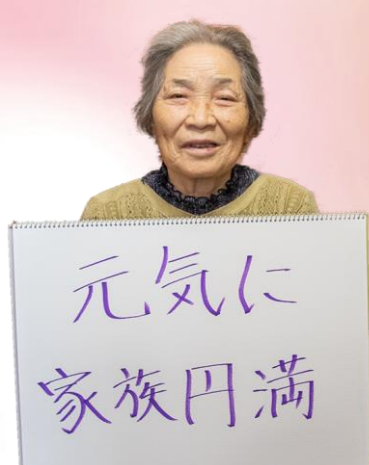 元気に
家族円満